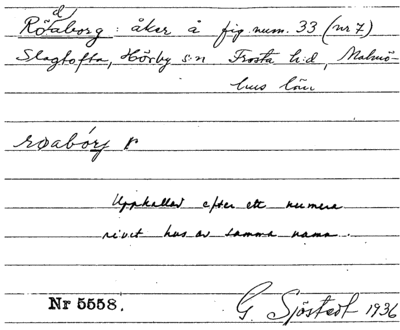 Rödaborg: åker å fig. num. 33 (nr 7)
Slagtofta, Hörby s:n Frosta h:d, Malmö-
hus län
røabórj r
Uppkallad efter ett numera
rivet hus av samma namn.
Nr 5558. G. Sjöstedt 1936